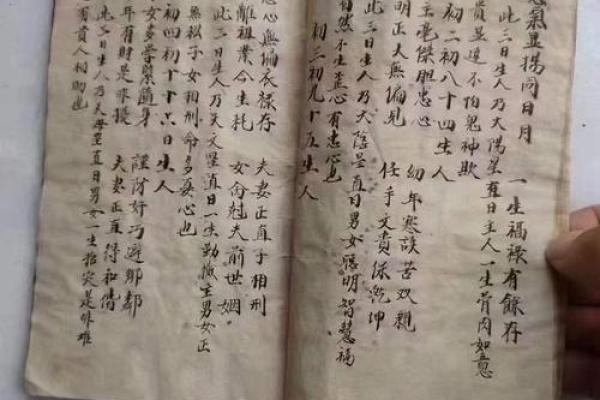 氣並揚同日月 一生福祿有餘存
此三日生人乃太陽星直日主人一生骨肉如意
貴显達不怕鬼神欺
初二初八十四生人
主毫傑胆忠心 幼年寒苦双親
明正大無偏見 任手文貴保乾坤
此三日生人乃太陰星直日男女聰明智慧福
自然不生歪心有忠心也
初三初九十五生人
心無偏衣祿存 夫妻正直子相刑
離祖業合生耗 女命尅夫前世姻
此三日生人乃天文星直日一生勤儉主男女正
無子女相刑命多妻心也
初四初十十六日生人
女多學累隨身 謹防奸巧避鄉鄰
年有財是非擾 夫妻正直得和偕
此三日生人乃天母星直日男女一生招災是非难
有貴人相助也